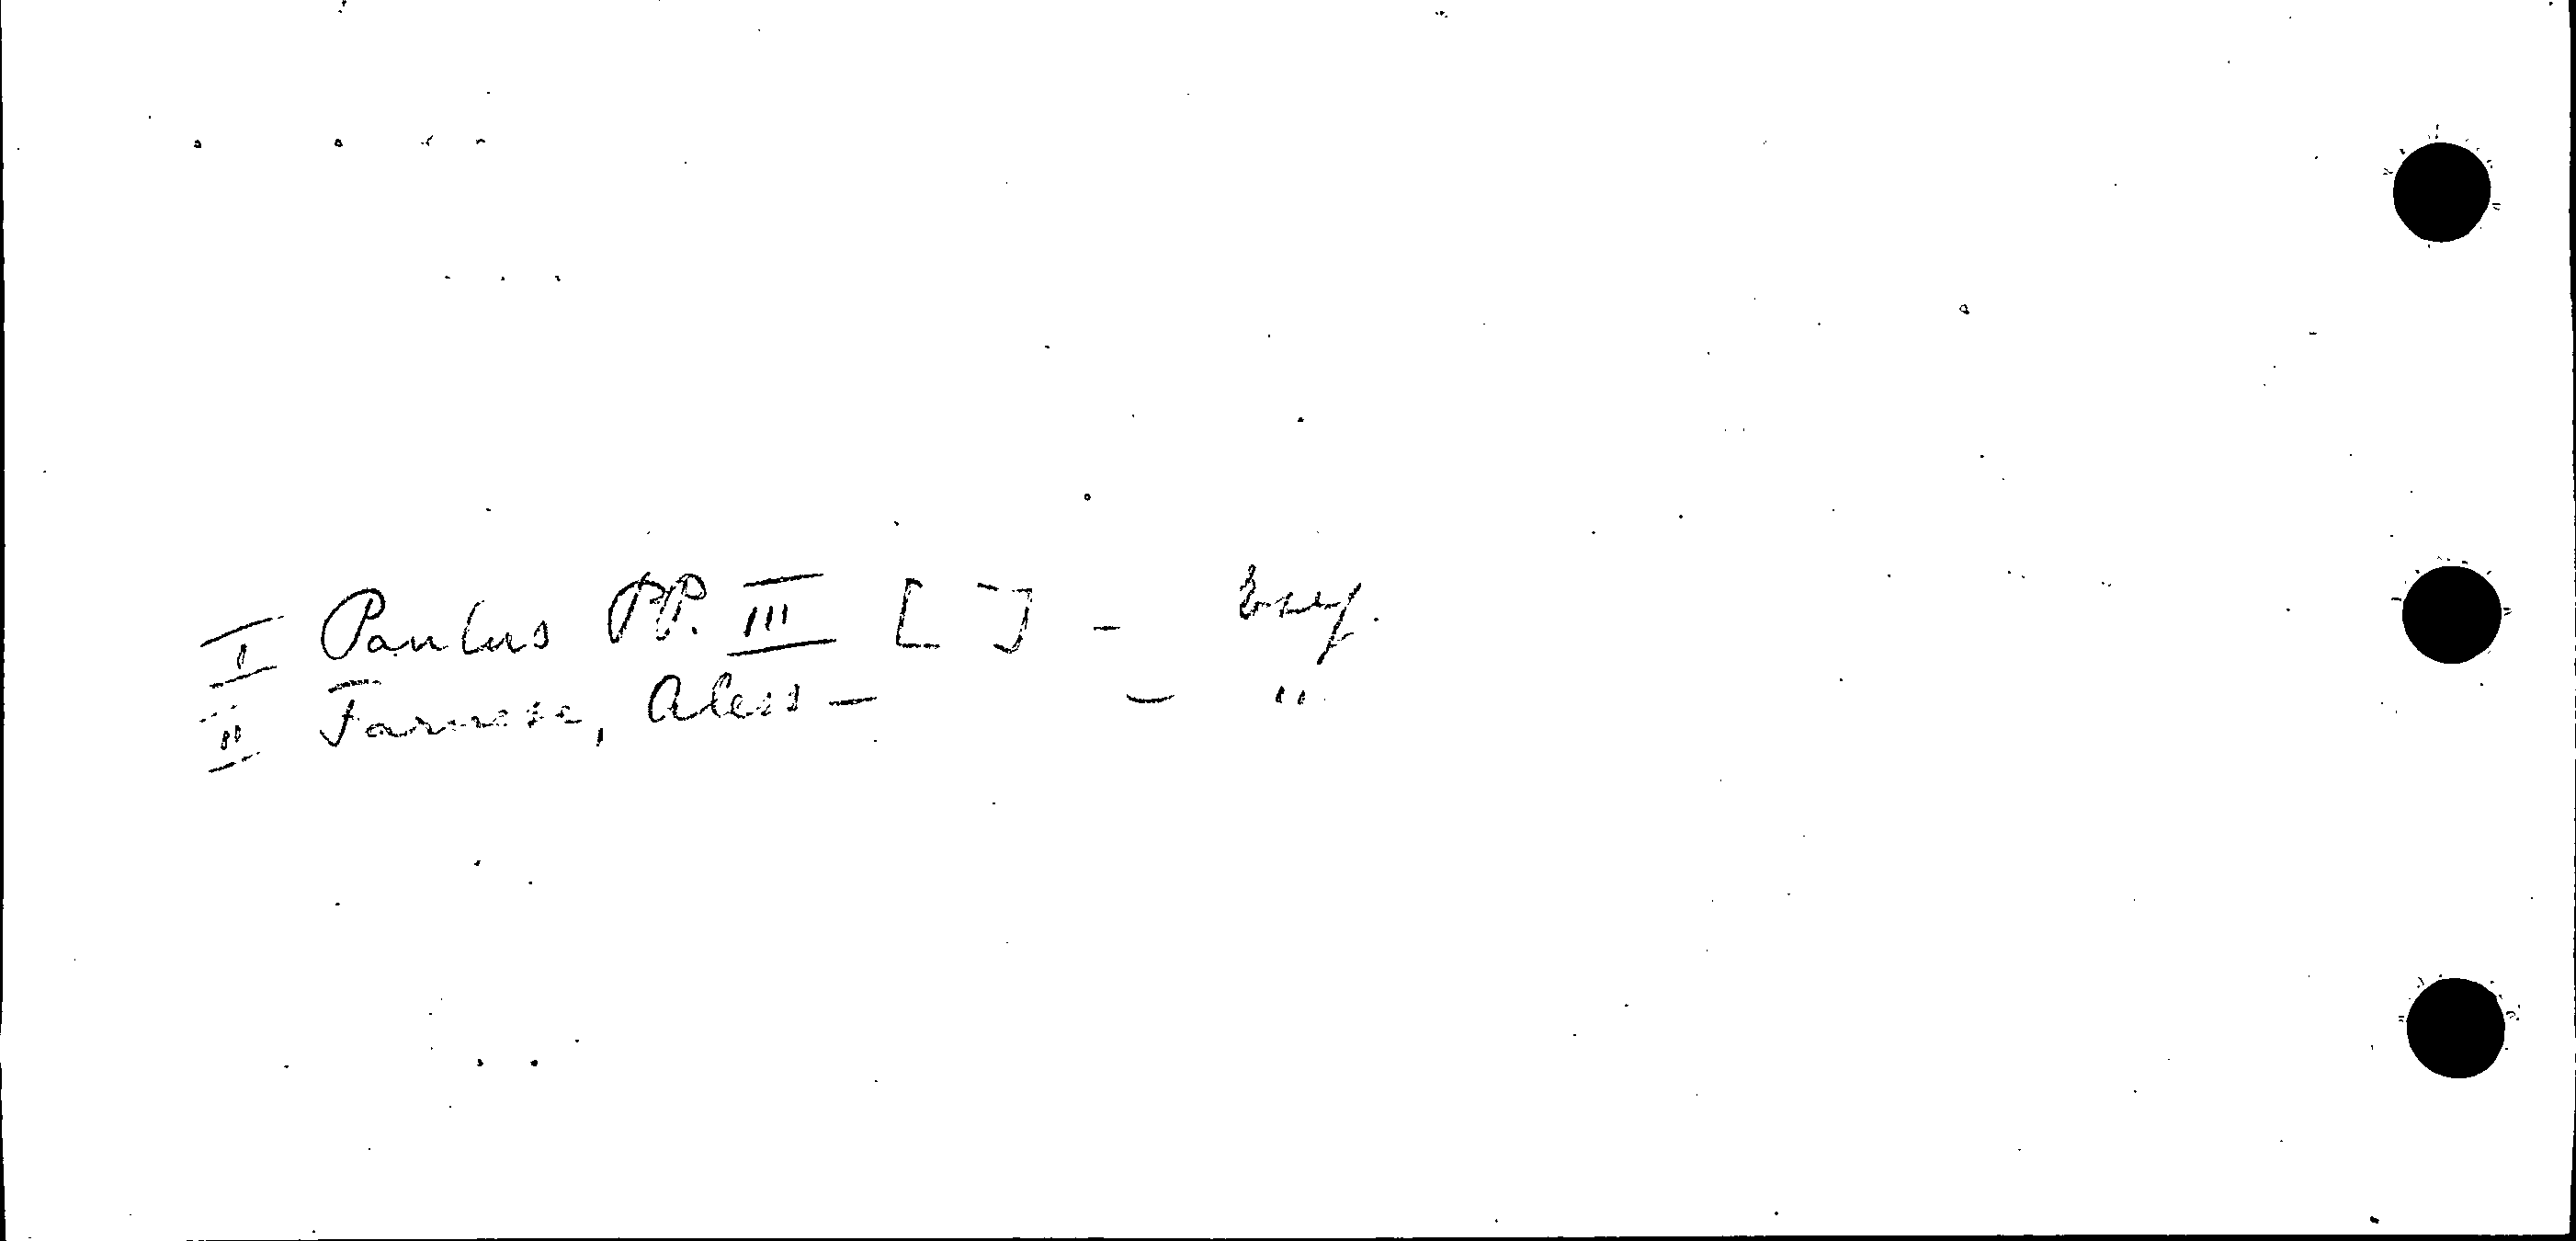 I Paulus PP. III [ ] -
II Farnese, Aless — - "